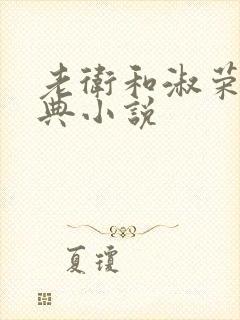 老衛和淑荣
典小説
夏瓊